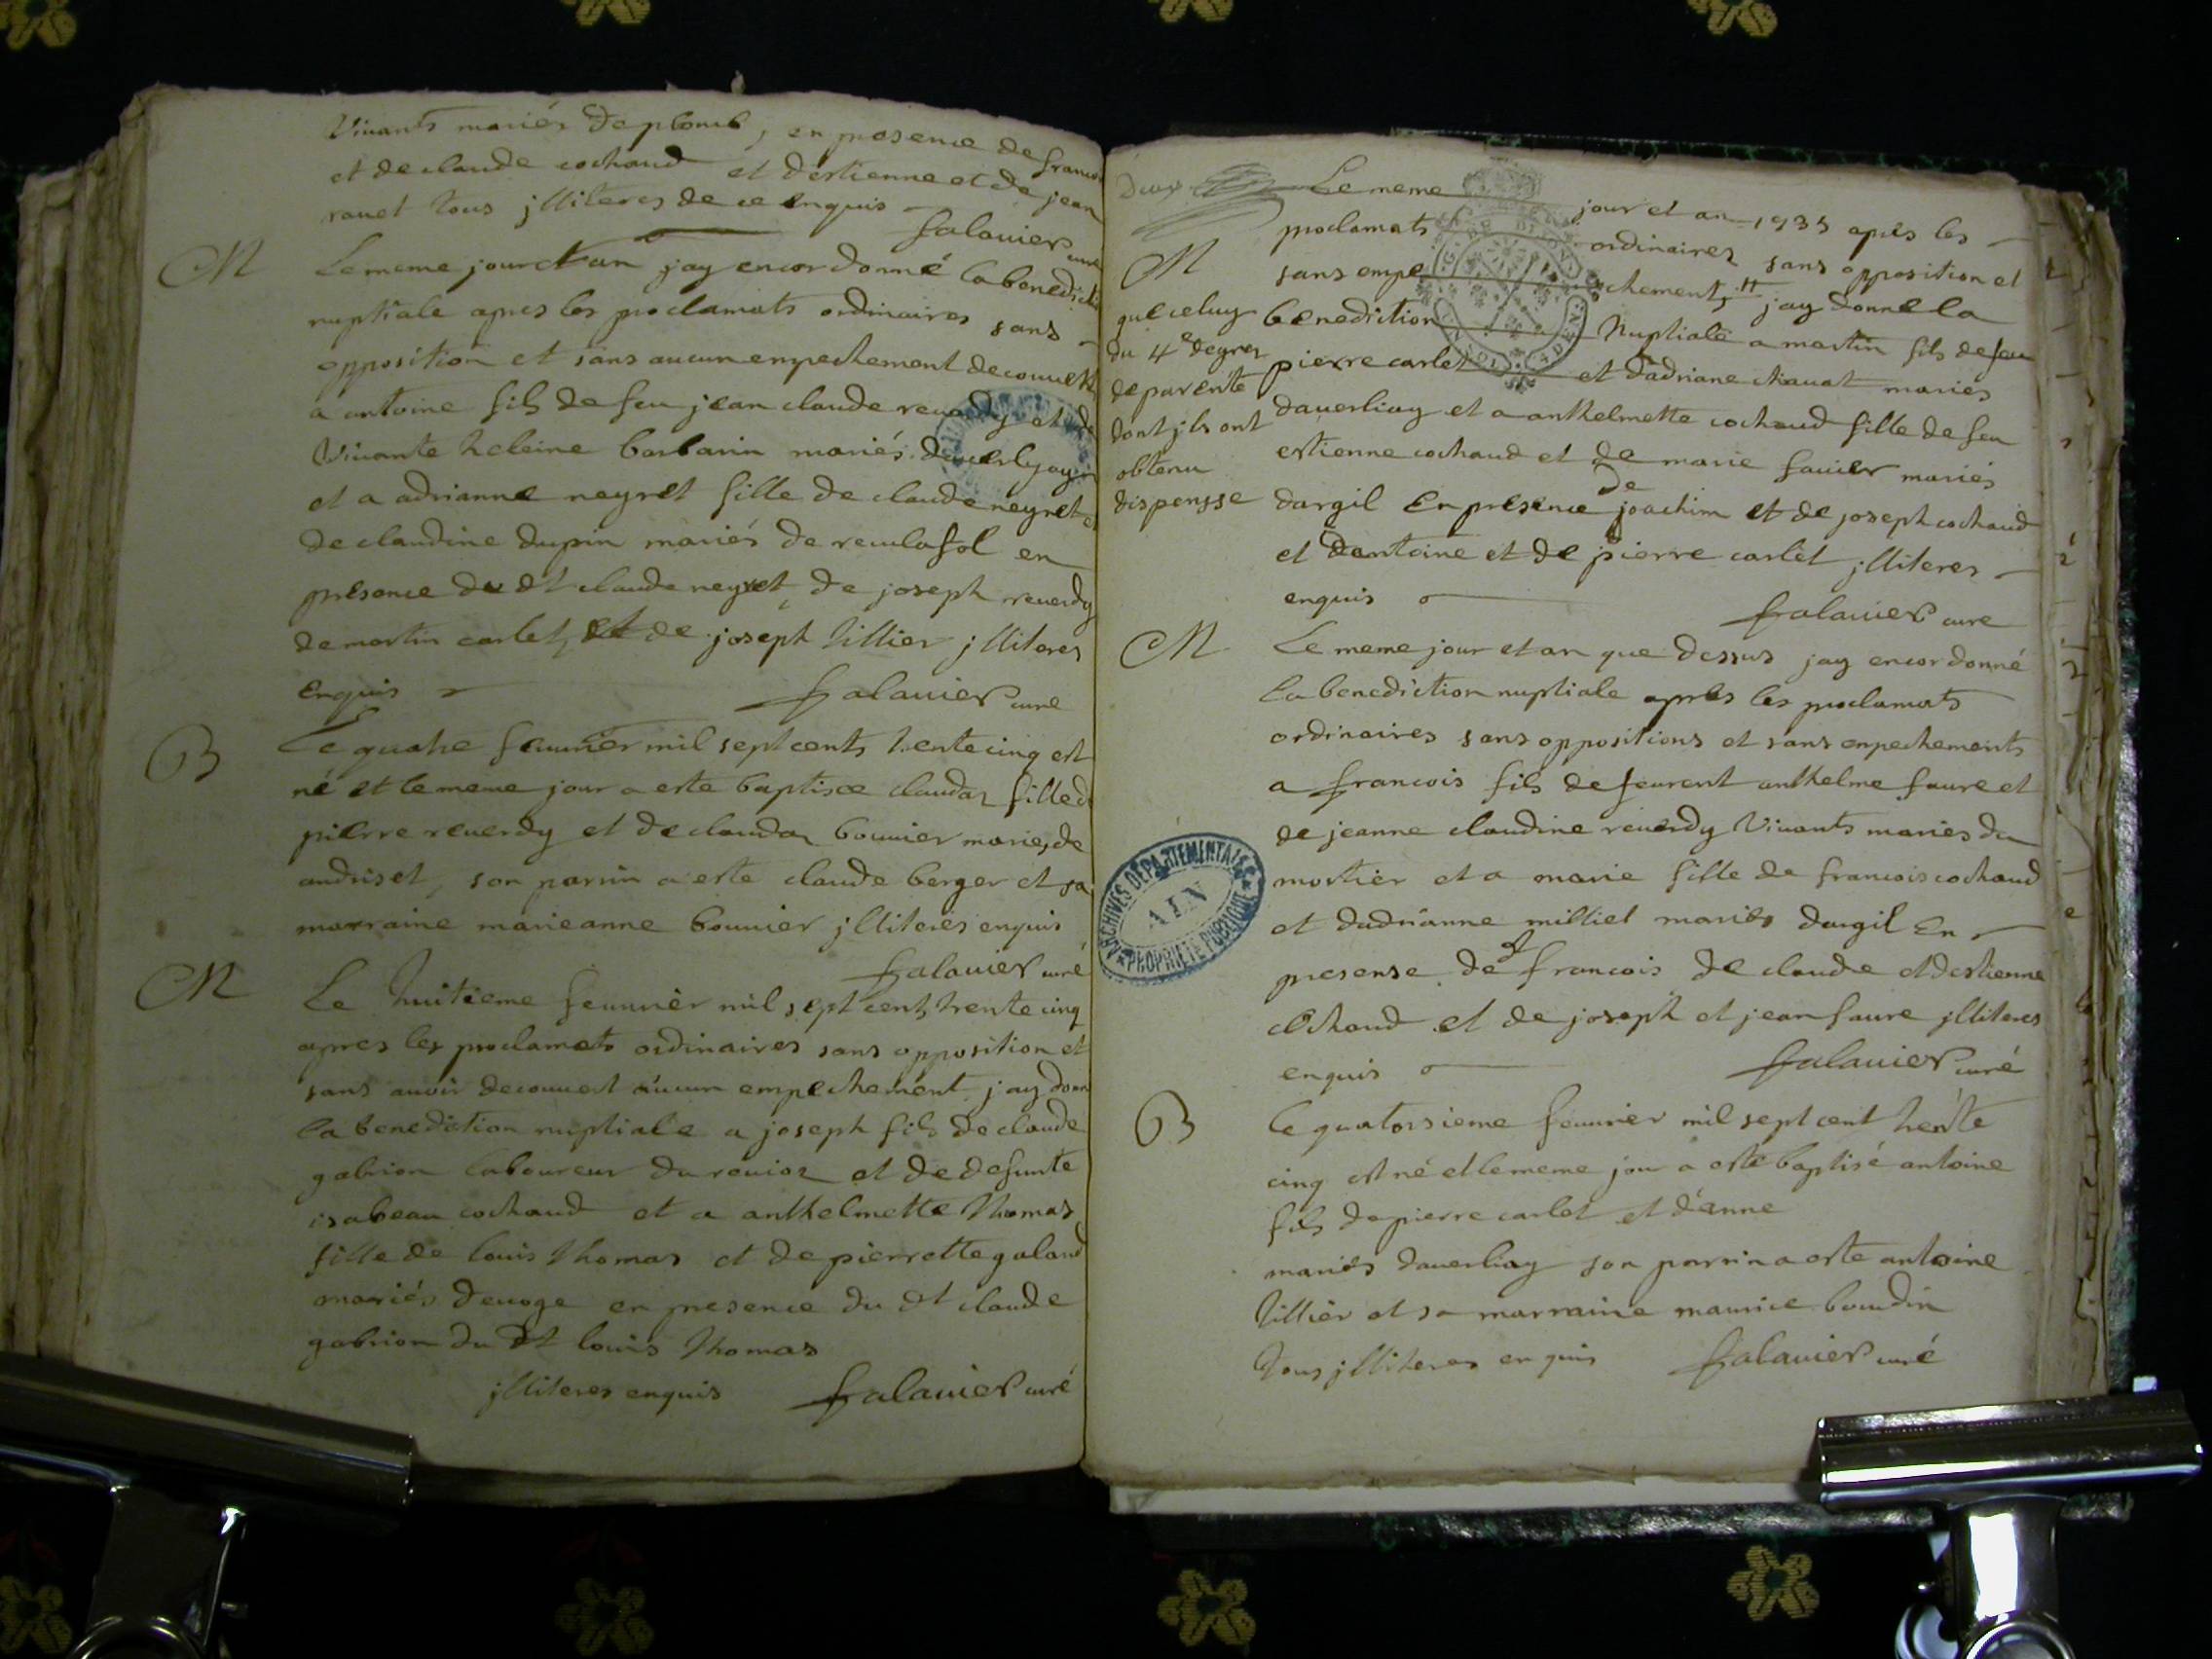 Vivants mariés de plomb, en presence de francois
et de claude cochaud et destienne et de jean
ravet tous jlliteres de ce enquis
falavier curé
M
Le meme jour et an jay encor donné la benedicti
nuptiale apres les proclamats ordinaires sans
opposition et sans aucun empechement decouvert
a antoine fils de feu jean claude reverdy et de
Vivante heleine barbarin mariés daverlyay
et a adrianne neyret fille de claude neyret et
de claudine dupin mariés de reculafol en
presence du dt claude neyret, de joseph reverdy
de martin carlet, et de joseph tillier jlliteres
enquis falavier curé
B
Le quatre feuvrier mil sept cents trente cinq est
né et le meme jour a este baptisee claudaz fille d
pierre reverdy et de claudaz bouvier maries de
andriset, son parrin a este claude berger et sa
marraine marieanne bouvier jlliteres enquis
falavier curé
M
Le huitieme feuvrier mil sept cent trente cinq
apres les proclamats ordinaires sans opposition et
sans avoir decouvert aucun empechement jay donn
la benediction nuptiale a joseph fils de claude
gabrion laboureur du rovioz et de defunte
isabeau cochaud et a anthelmette thomas
fille de louis thomas et de pierrette galand
mariés devoge en presence du dt claude
gabrion du dt louis thomas
jlliteres enquis falavier curé
Deux
Le meme jour et an 1735 apres les
proclamats ordinaires sans opposition et
M
sans empechement jay donne la
que celuy
du 4e degrez
de parente
dont jls ont
obtenu
dispensse
benediction Nuptiale a martin fils de feu
pierre carlet et dadriane chavat mariés
daverliay et a anthelmette cochaud fille de feu
estienne cochaud et de marie favier mariés
dargil En presence de joachim et de joseph cochaud
et dantoine et de pierre carlet jlliteres
enquis falavier curé
M
Le meme jour et an que dessus jay encor donné
la benediction nuptiale apres les proclamats
ordinaires sans oppositions et sans enpechements
a francois fils de feurent anthelme faure et
de jeanne claudine reverdy Vivants mariés du
mortier et a marie fille de francois cochaud
et dadrianne milliet mariés dargil En
presense de dt francois de claude et destienne
cochaud et de joseph et jean faure jlliteres
enquis falavier curé
B
Le quatorsieme feuvrier mil sept cent trente
cinq est né et le meme jour a este baptisé antoine
fils de pierre carlet et d'anne
mariés daverliay son parrin a este antoine
tillier et sa marraine maurice boudin
tous jlliteres enquis falavier curé
ARCHIVES DEPARTEMENTALES
AIN
PROPRIETE PUBLIQUE